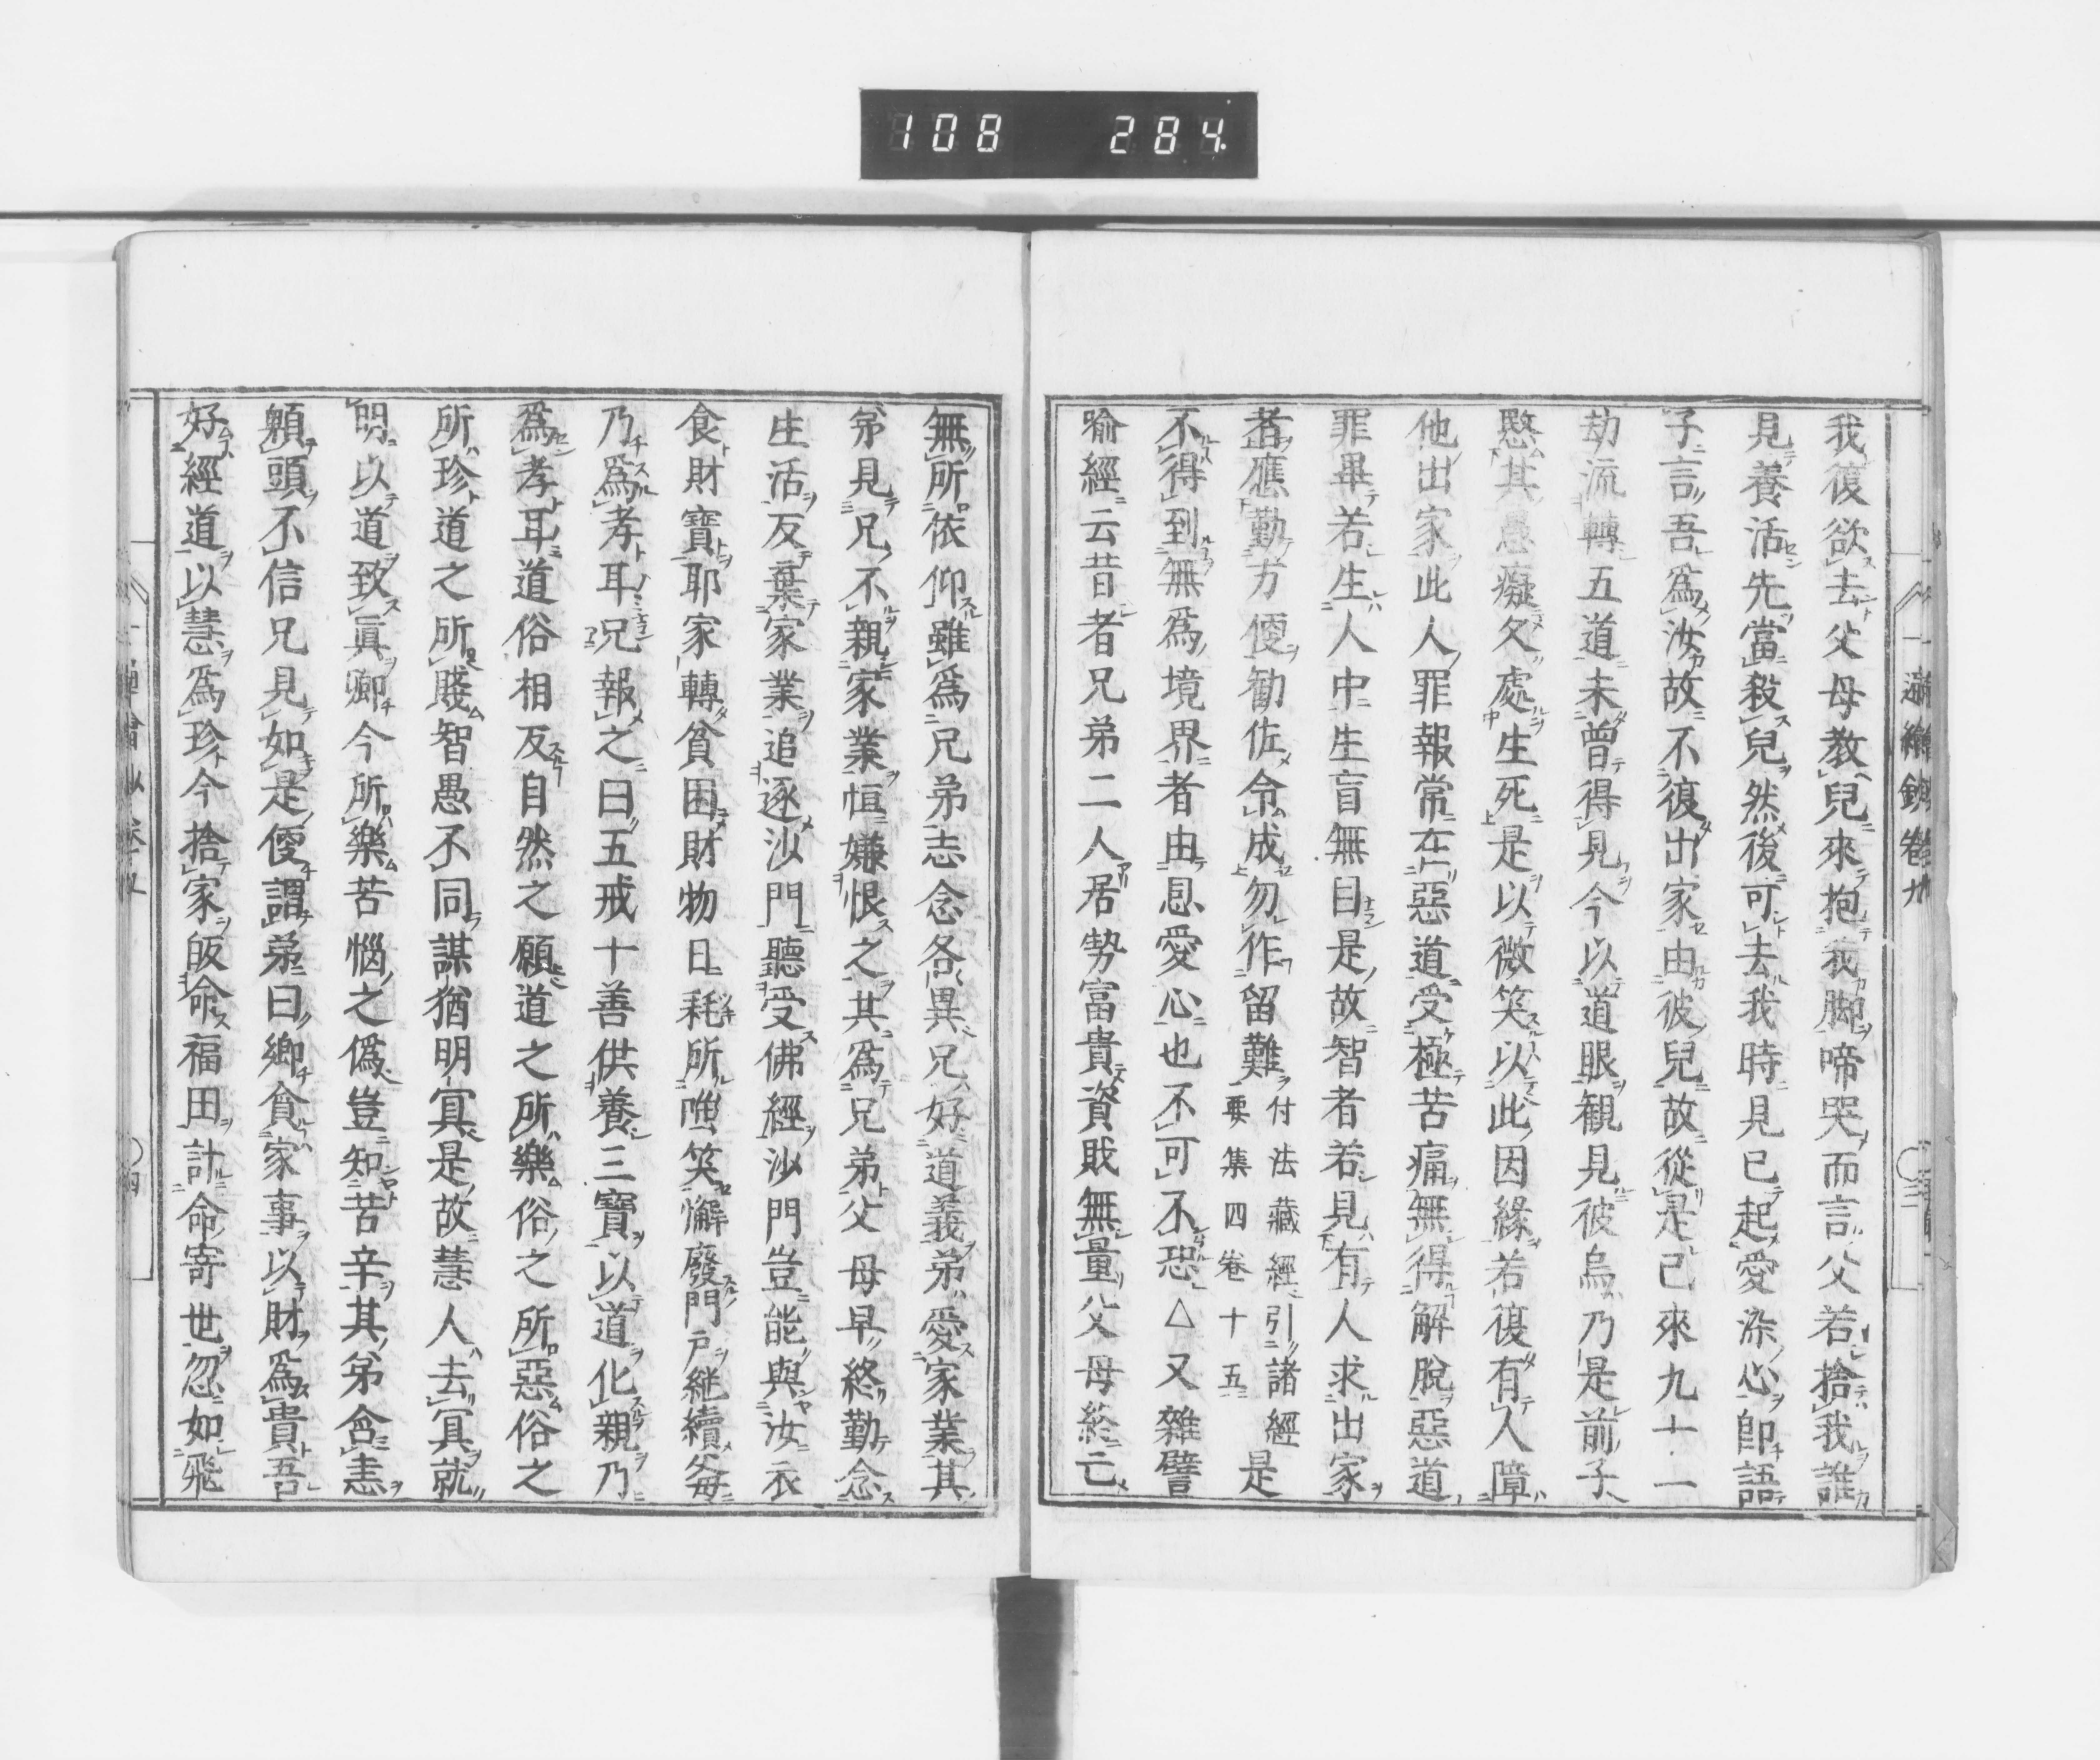 108 284
我復欲去父母教兒來抱我脚啼哭而言父若捨我誰
見養活先當殺兒然後可去我時見已起愛染心卽語
子言吾爲汝故不復出家由彼兒故從是已來九十一
劫流轉五道未曾得見今以道眼観見彼烏乃是前子
愍其愚癡久處生死是以微笑以此因緣若復有人障
他出家此人罪報常在惡道受極苦痛無得解脫惡道
罪畢若生人中生盲無目是故智者若見有人求出家
者應勤方便勧佐令成勿作留難付法藏經引諸經要集四卷十五是
不得到無爲境界者由恩愛心也不可不恐△又雜譬
喻經云昔者兄弟二人居勢富貴資財無量父母終亡
無所依仰雖爲兄弟志念各異兄好道義弟愛家業其
弟見兄不親家業恒嫌恨之其爲兄弟父母早終勤念
生活反棄家業追逐沙門聽受佛經沙門豈能與汝衣
食財寶耶家轉貧困財物日耗所嗤笑懈廢門戶継續父母
乃爲孝耳兄報之曰五戒十善供養三寶以道化親乃
爲孝耳道俗相反自然之願道之所樂俗之所惡俗之
所珍道之所賤智愚不同謀猶明冥是故慧人去冥就
明以道致眞卿今所樂苦惱之僞豈知苦辛其弟含恚
頼頭不信兄見如是便謂弟曰卿貪家事以財爲貴吾
好經道以慧爲珍今捨家皈命福田計命寄世忽如飛